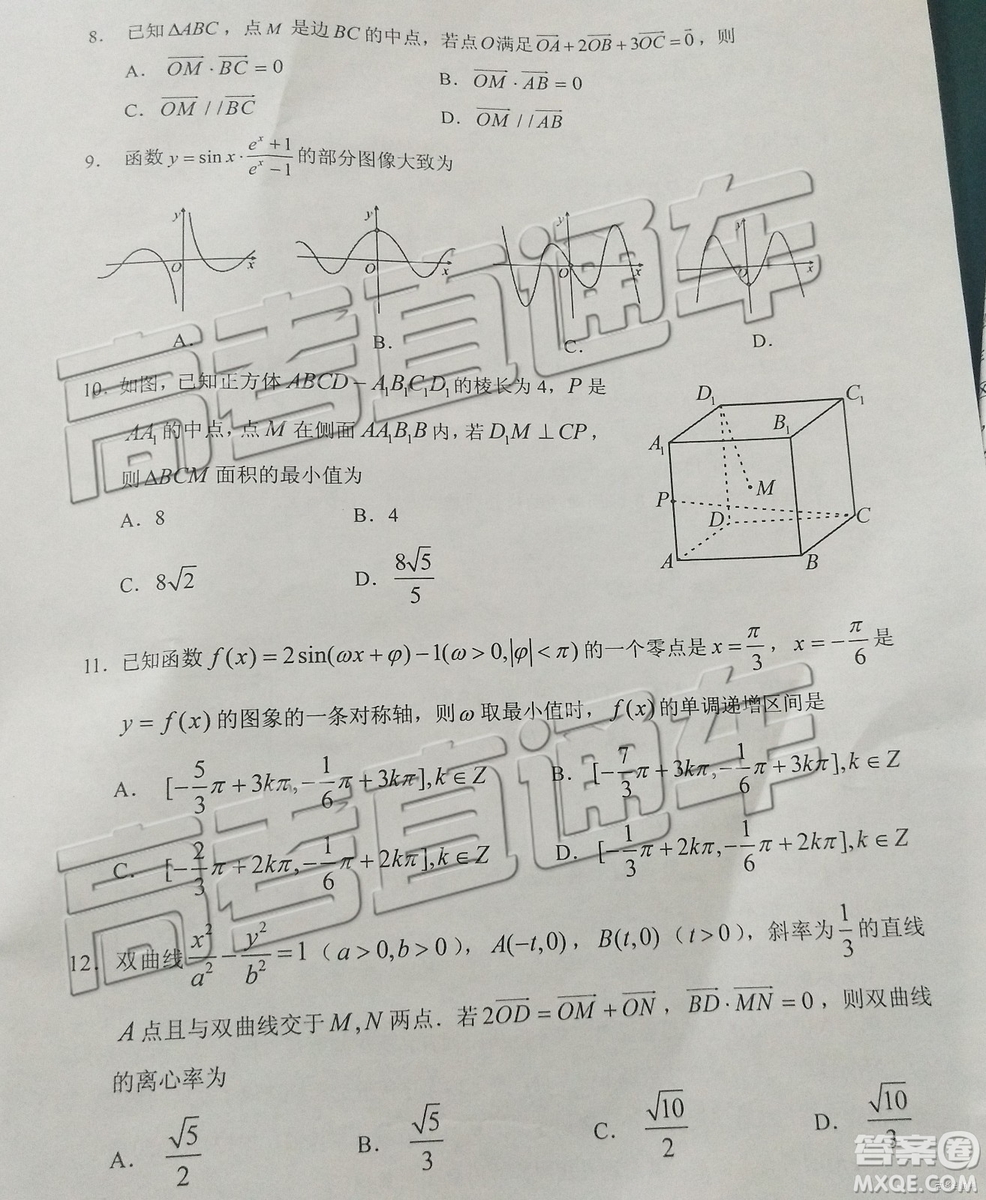 8. 已知ΔABC，点M是边BC的中点，若点O满足$\overrightarrow{OA}+2\overrightarrow{OB}+3\overrightarrow{OC}=\vec{0}$，则
A. $\overrightarrow{OM}\cdot\overrightarrow{BC}=0$ B. $\overrightarrow{OM}\cdot\overrightarrow{AB}=0$
C. $\overrightarrow{OM}//\overrightarrow{BC}$ D. $\overrightarrow{OM}//\overrightarrow{AB}$
9. 函数$y=\sin x\cdot\frac{e^x+1}{e^x-1}$的部分图像大致为
y O x y O x y O x y O x
A. B. C. D.
10. 如图，已知正方体$ABCD-A_1B_1C_1D_1$的棱长为4，P是
$AA_1$的中点，点M在侧面$AA_1B_1B$内，若$D_1M\perp CP$，
则ΔBCM面积的最小值为
A. 8 B. 4
C. $8\sqrt{2}$ D. $\frac{8\sqrt{5}}{5}$
$D_1$ $C_1$ $A_1$ $B_1$ M P D C A B
11. 已知函数$f(x)=2\sin(\omega x+\varphi)-1(\omega>0,|\varphi|<\pi)$的一个零点是$x=\frac{\pi}{3}$，$x=-\frac{\pi}{6}$是
$y=f(x)$的图象的一条对称轴，则ω取最小值时，$f(x)$的单调递增区间是
A. $[-\frac{5}{3}\pi+3k\pi,-\frac{1}{6}\pi+3k\pi],k\in Z$ B. $[-\frac{7}{3}\pi+3k\pi,-\frac{1}{6}\pi+3k\pi],k\in Z$
C. $[-\frac{2}{3}\pi+2k\pi,-\frac{1}{6}\pi+2k\pi],k\in Z$ D. $[-\frac{1}{3}\pi+2k\pi,-\frac{1}{6}\pi+2k\pi],k\in Z$
12. 双曲线$\frac{x^2}{a^2}-\frac{y^2}{b^2}=1$（$a>0,b>0$），$A(-t,0)$，$B(t,0)$（$t>0$），斜率为$\frac{1}{3}$的直线
A点且与双曲线交于M,N两点．若$2\overrightarrow{OD}=\overrightarrow{OM}+\overrightarrow{ON}$，$\overrightarrow{BD}\cdot\overrightarrow{MN}=0$，则双曲线
的离心率为
A. $\frac{\sqrt{5}}{2}$ B. $\frac{\sqrt{5}}{3}$ C. $\frac{\sqrt{10}}{2}$ D. $\frac{\sqrt{10}}{3}$
高考直通车
高考直通车
答案圈
MXQE.COM